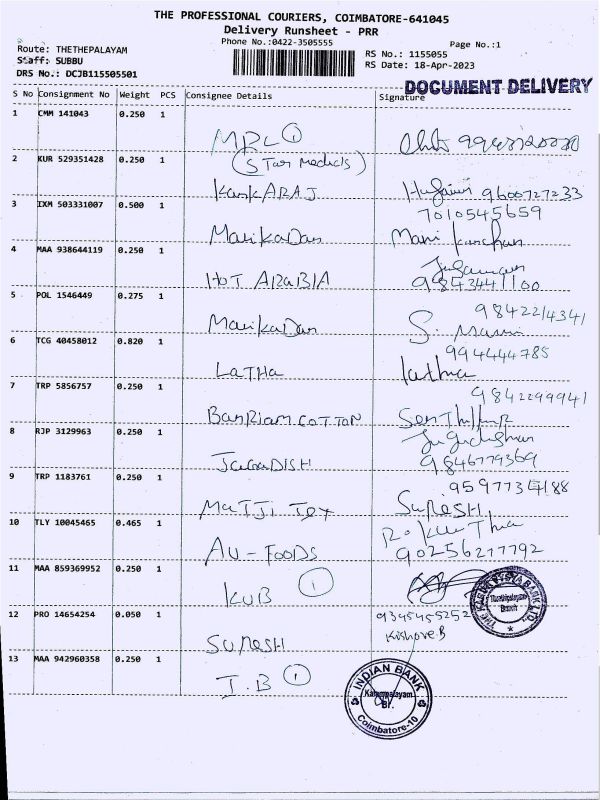 THE PROFESSIONAL COURIERS, COIMBATORE-641045
Delivery Runsheet - PRR
Phone No.:0422-3505555
Page No.:1
Route: THETHEPALAYAM
Staff: SUBBU
DRS No.: DCJB115505501
RS No.: 1155055
RS Date: 18-Apr-2023
DOCUMENT DELIVERY
S No Consignment No Weight PCS Consignee Details Signature
1 CMM 141043 0.250 1
MPL 1
(STar Medicals)
2 KUR 529351428 0.250 1
KankARAJ 9600727233
3 IXM 503331007 0.500 1
7010545659
ManikaDan Mani
4 MAA 938644119 0.250 1
HOT ARABIA 9843441100
5 POL 1546449 0.275 1
9842214341
ManikaDan S. Mani
6 TCG 40458012 0.820 1
994444785
LaTHa latha
7 TRP 5856757 0.250 1
9842299941
COTTON
8 RJP 3129963 0.250 1
JagaDISH 9846779369
9 TRP 1183761 0.250 1
9597734188
MaTJI Tex SuRESH
10 TLY 10045465 0.465 1
AU-FOODS 90256277792
11 MAA 859369952 0.250 1
KVB 1
12 PRO 14654254 0.050 1
9345455252
Kishore.B
SuRESH
13 MAA 942960358 0.250 1
I.B 1
INDIAN BANK
Br.
Coimbatore-10